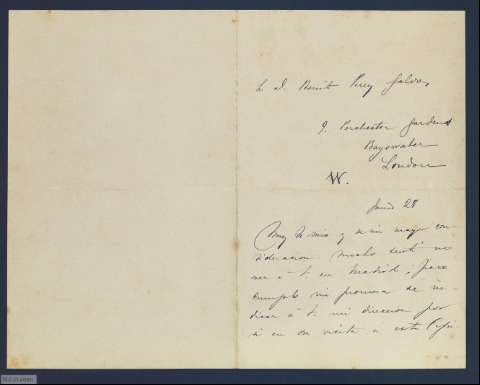 S. D. Benito Perez Galdos
9. Porchester Gardens
Bayswater
London
W.
Junio 28
Muy Sr mio y de mi mayor con
sideracion: mucho sentí no
ver á V. en Madrid, pero
cumplo mi promesa de in-
dicar á V. mi direccion por
si en su visita á esta